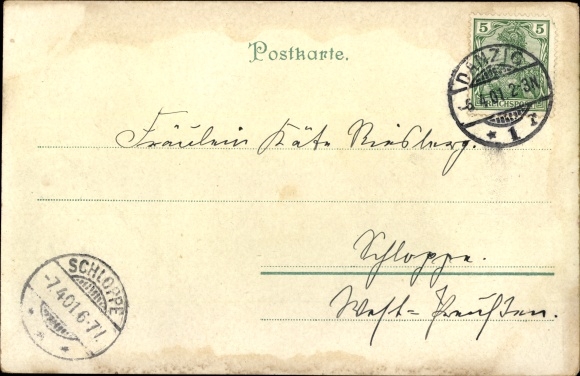 Postkarte.
5 5
REICHSPOST
DANZIG
6.4.01. 2-3N
* 1 r
Fräulein Käte Riesberg.
Schloppe.
West-Preußen.
SCHLOPPE
-7.4.01.6-7V.